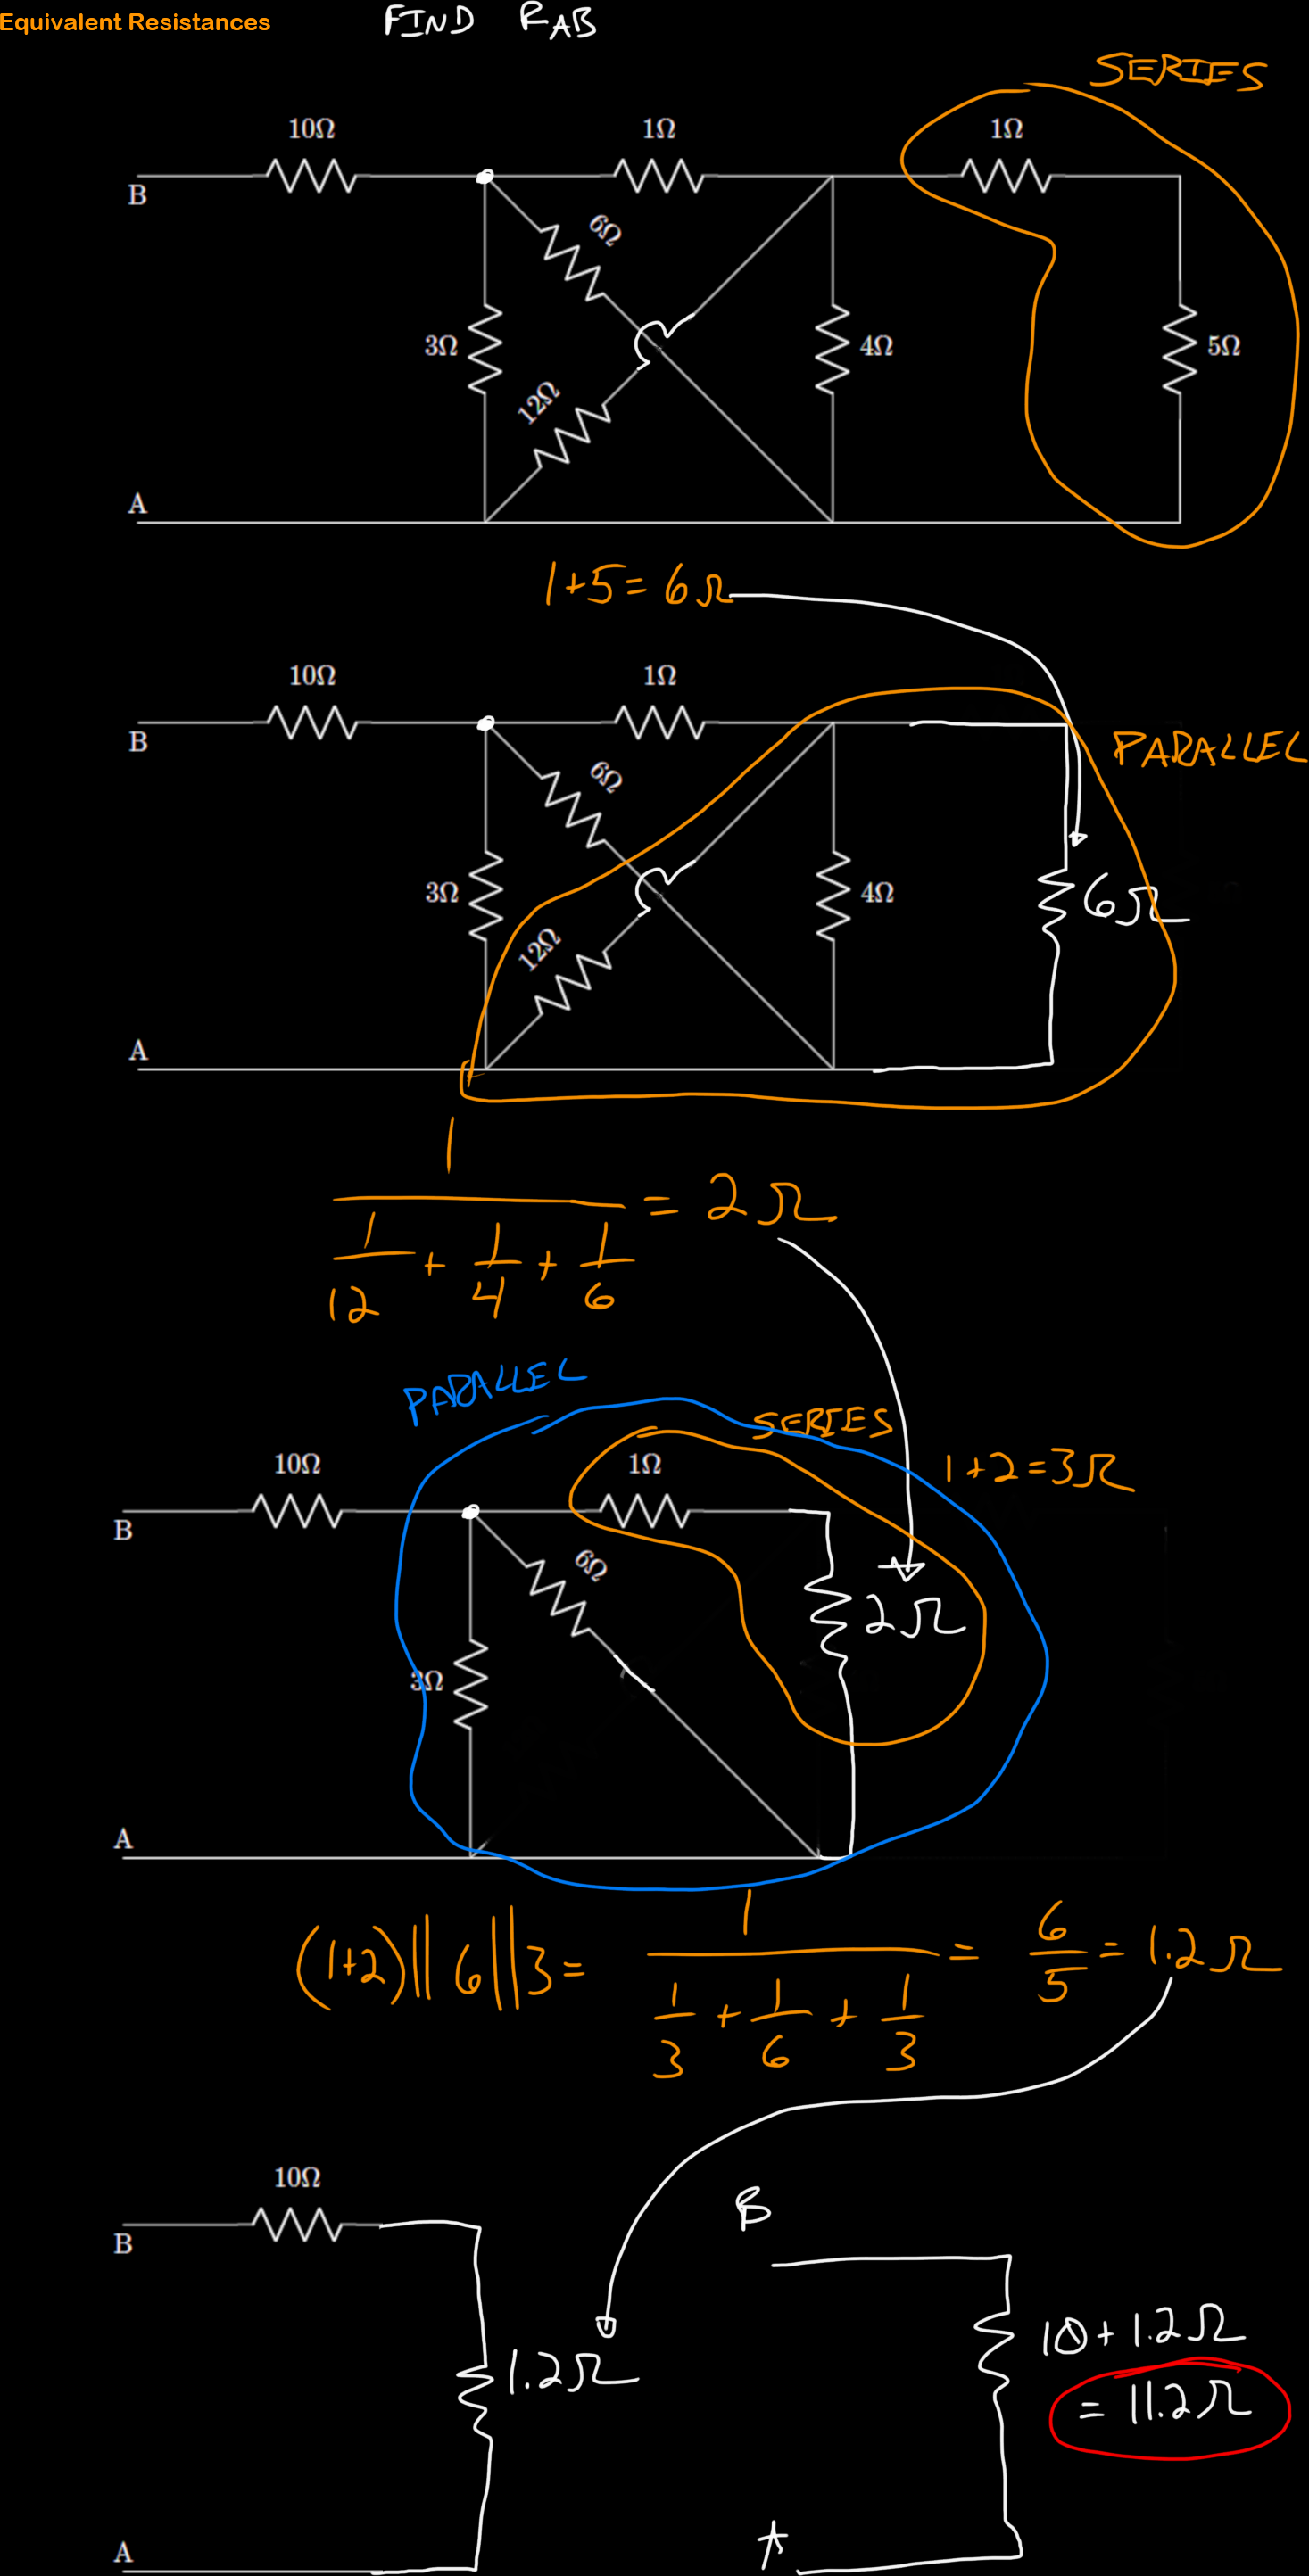 Equivalent Resistances
FIND RAB
SERIES
10Ω 1Ω 1Ω
B
6Ω
3Ω 4Ω 5Ω
12Ω
A
1+5=6Ω
10Ω 1Ω
B
PARALLEL
6Ω
3Ω 4Ω 6Ω
12Ω
A
1/(1/12 + 1/4 + 1/6) = 2Ω
PARALLEL
SERIES
10Ω 1Ω 1+2=3Ω
B
6Ω
2Ω
3Ω
A
(1+2)||6||3= 1/(1/3 + 1/6 + 1/3) = 6/5 = 1.2Ω
10Ω
B
B
1.2Ω
10+1.2Ω
= 11.2Ω
A
A